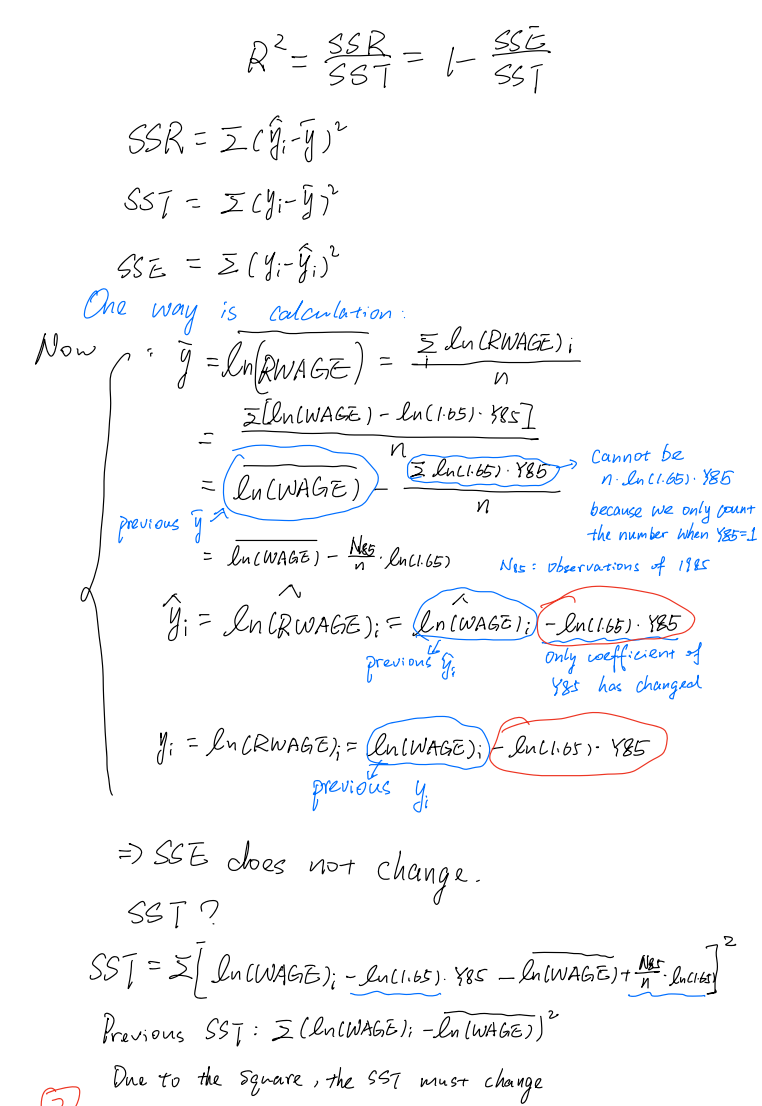 R² = SSR/SST = 1 - SSE/SST
SSR = Σ(ŷᵢ-ȳ)²
SST = Σ(yᵢ-ȳ)²
SSE = Σ(yᵢ-ŷᵢ)²
One way is calculation:
Now : ȳ = \overline{ln(RWAGE)} = Σᵢ ln(RWAGE)ᵢ / n
= Σ[ln(WAGE) - ln(1.65)·Y85] / n
= \overline{ln(WAGE)} - Σ ln(1.65)·Y85 / n
previous ȳ
Cannot be
n·ln(1.65)·Y85
because we only count
the number when Y85=1
= \overline{ln(WAGE)} - N85/n · ln(1.65)
N85: observations of 1985
ŷᵢ = \widehat{ln(RWAGE)}ᵢ = \widehat{ln(WAGE)}ᵢ -ln(1.65)·Y85
previous ŷᵢ
only coefficient of
Y85 has changed
yᵢ = ln(RWAGE)ᵢ = ln(WAGE)ᵢ - ln(1.65)·Y85
previous yᵢ
⇒ SSE does not change.
SST ?
SST = Σ[ln(WAGE)ᵢ - ln(1.65)·Y85 - \overline{ln(WAGE)} + N85/n · ln(1.65)]²
Previous SST: Σ(ln(WAGE)ᵢ - \overline{ln(WAGE)})²
Due to the square, the SST must change